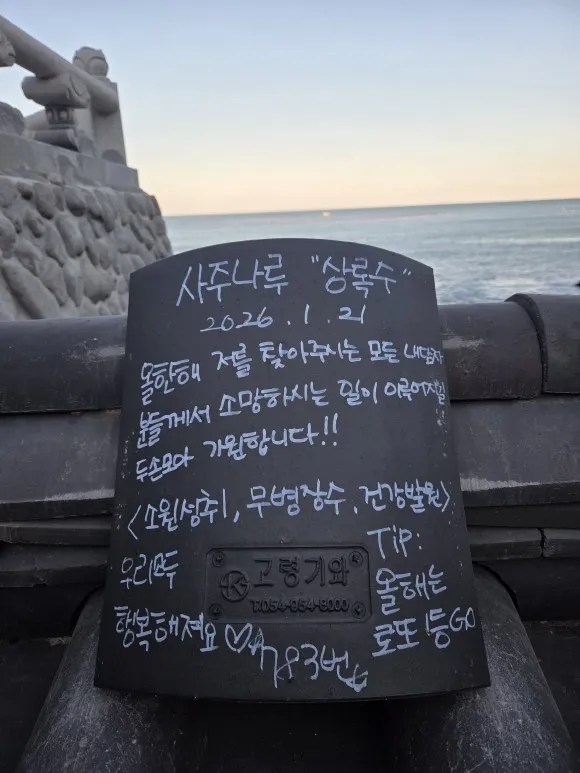 사주나루 "상록수"
2026.1.21
올한해 저를 찾아주시는 모든 내담자
분들께서 소망하시는 일이 이루어지길
두손모아 기원합니다!!
<소원성취, 무병장수, 건강발원>
우리모두
행복해져요♡
783번
고령기와
T.054-954-8000
Tip.
올해는
로또1등GO